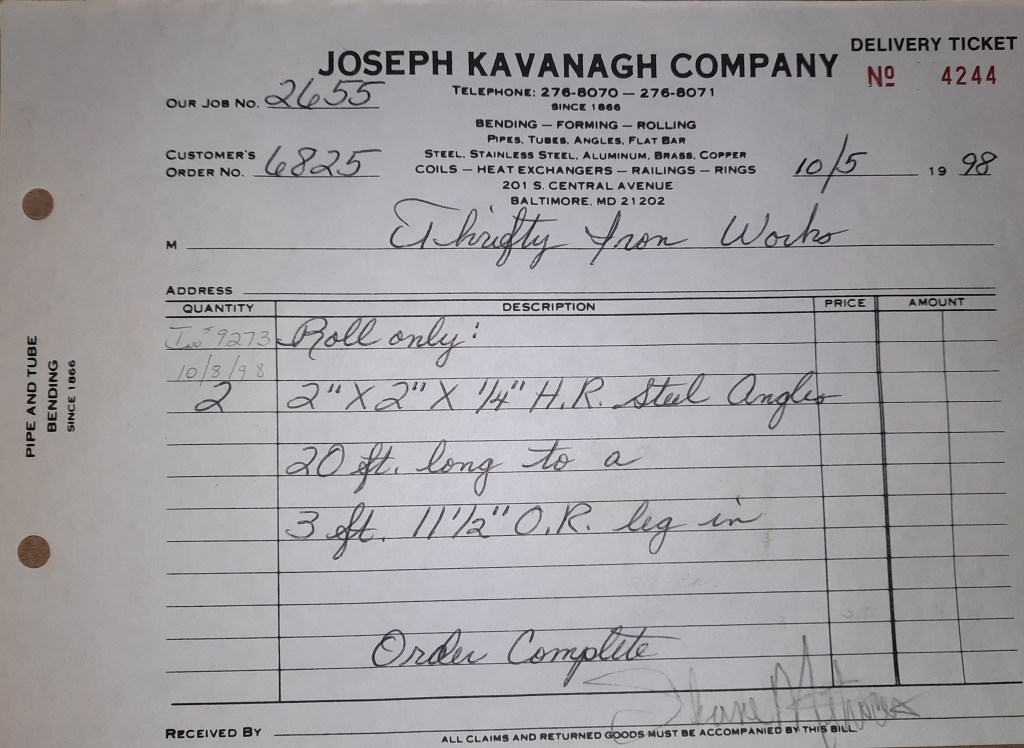 DELIVERY TICKET
JOSEPH KAVANAGH COMPANY
Nº 4244
OUR JOB NO. 2655
TELEPHONE: 276-8070 — 276-8071
SINCE 1866
BENDING — FORMING — ROLLING
PIPES, TUBES, ANGLES, FLAT BAR
CUSTOMER'S ORDER NO. 6825
STEEL, STAINLESS STEEL, ALUMINUM, BRASS, COPPER
COILS — HEAT EXCHANGERS — RAILINGS — RINGS
10/5 19 98
201 S. CENTRAL AVENUE
BALTIMORE, MD 21202
M Thrifty Iron Works
ADDRESS
QUANTITY DESCRIPTION PRICE AMOUNT
Inv # 9273 Roll only:
10/8/98
2 2" X 2" X 1/4" H.R. Steel Angles
20 ft. long to a
3 ft. 11 1/2" O.R. leg in
Order Complete
RECEIVED BY
ALL CLAIMS AND RETURNED GOODS MUST BE ACCOMPANIED BY THIS BILL
PIPE AND TUBE
BENDING
SINCE 1866